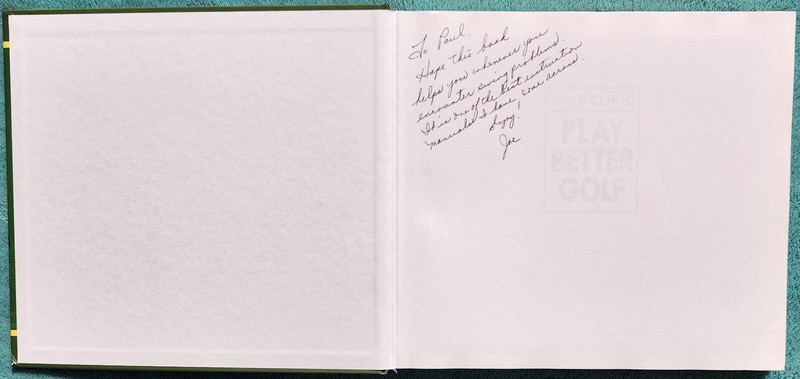 To Paul.
Hope this book
helps you whenever you
encounter swing problems.
It is one of the best instruction
manuals I have come across.
Enjoy!
Joe
GOLF CLINIC
PLAY
BETTER
GOLF